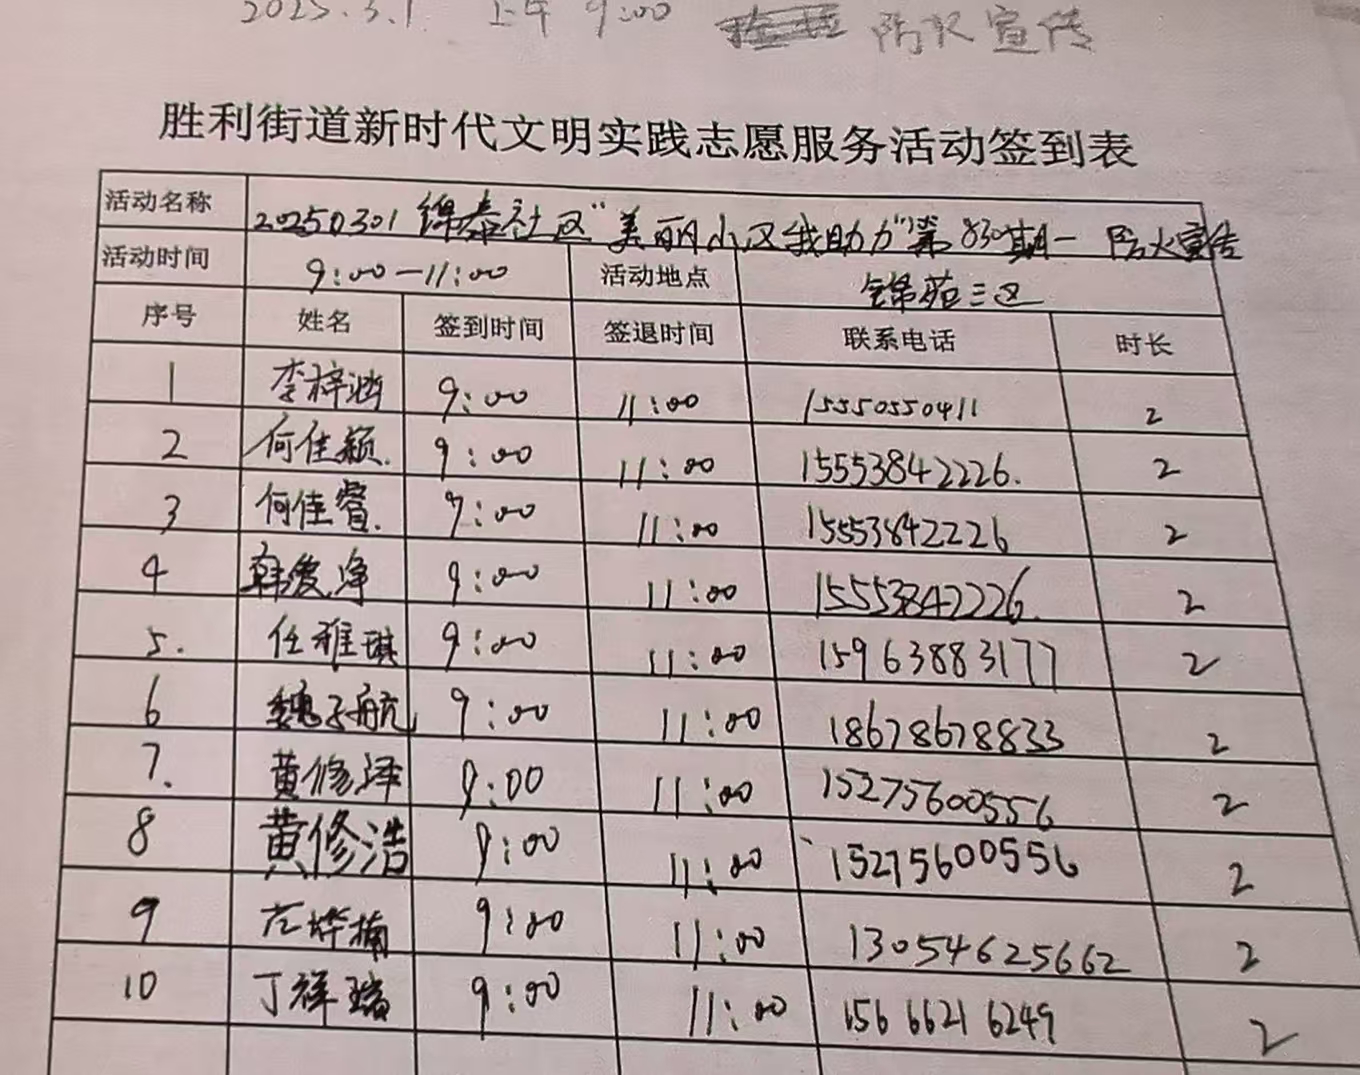 2025.3.1 上午 9:00 防火宣传
胜利街道新时代文明实践志愿服务活动签到表
活动名称 20250301 锦泰社区"美丽小区我助力"第830期— 防火宣传
活动时间 9:00—11:00 活动地点 锦苑三区
序号 姓名 签到时间 签退时间 联系电话 时长
1 李梓涵 9:00 11:00 15550550411 2
2 何佳颖. 9:00 11:00 15553842226. 2
3 何佳睿. 9:00 11:00 15553842226 2
4 韩爱净 9:00 11:00 15553842226. 2
5. 任雅琪 9:00 11:00 15963883177 2
6 魏子航 9:00 11:00 18678678833 2
7. 黄修泽 9:00 11:00 15275600556 2
8 黄修浩 9:00 11:00 15275600556 2
9 9:00 11:00 13054625662 2
10 丁祥瑞 9:00 11:00 15666216249 2